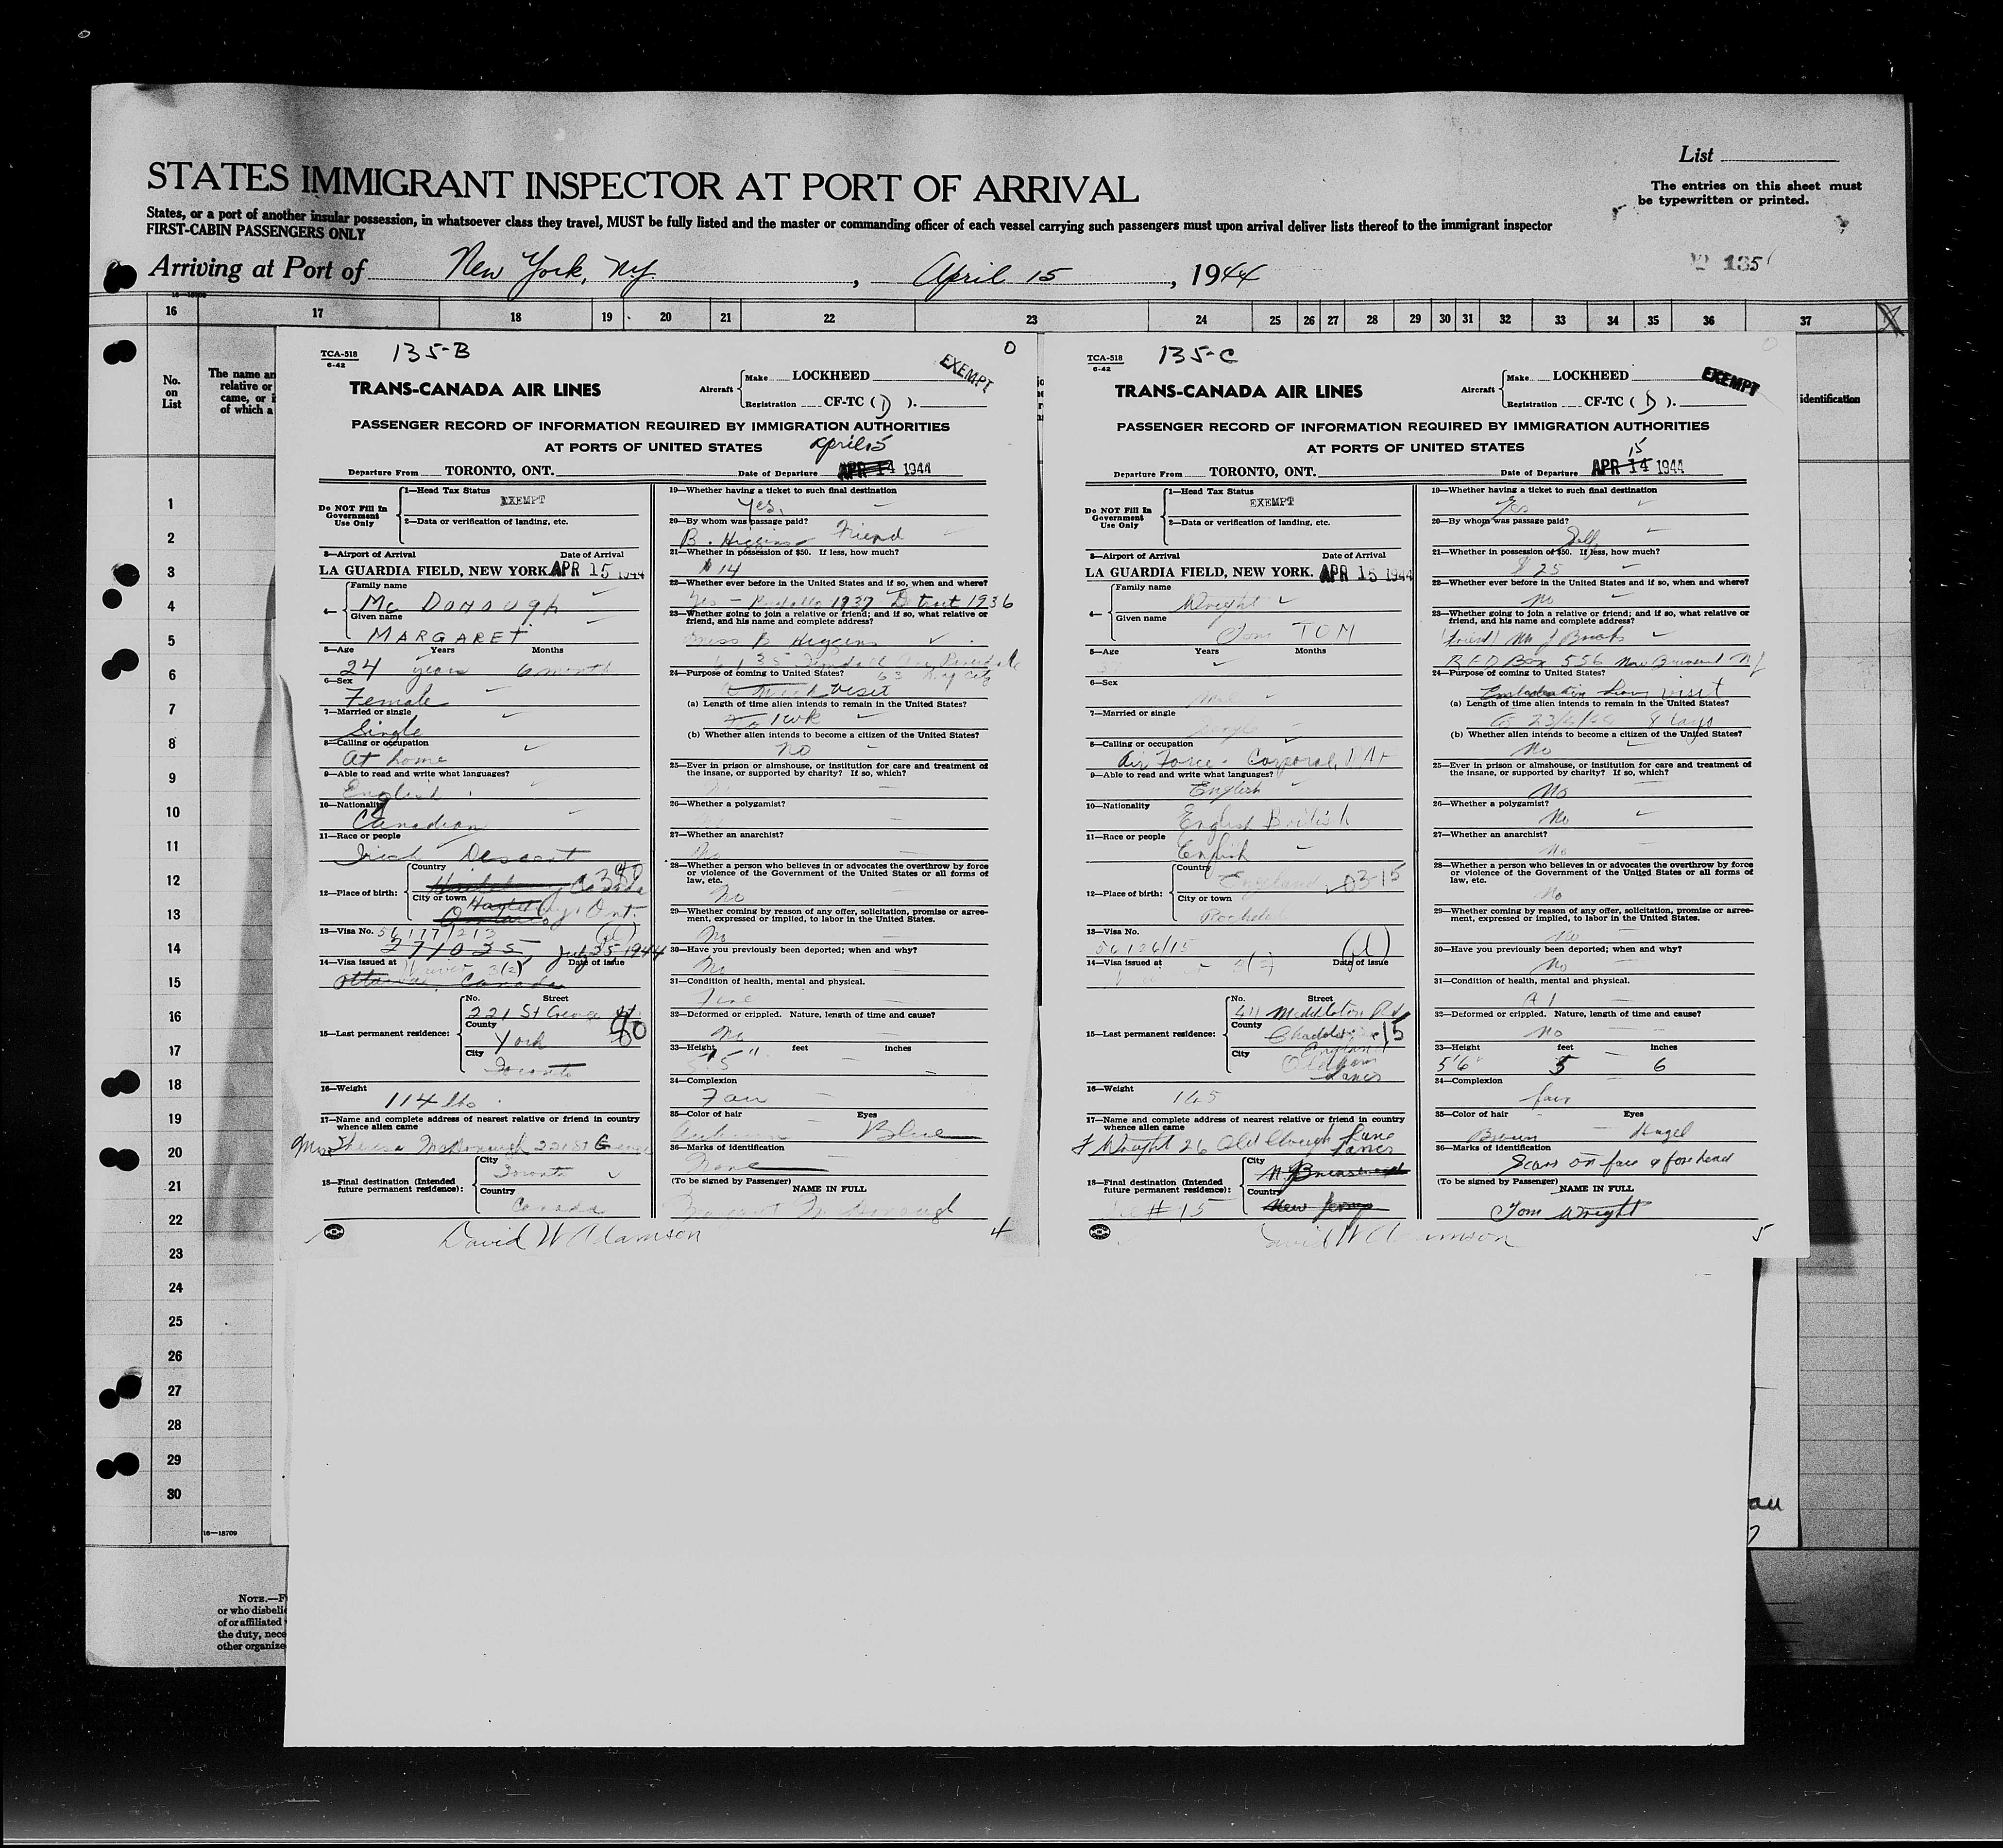 List
STATES IMMIGRANT INSPECTOR AT PORT OF ARRIVAL
The entries on this sheet must
be typewritten or printed.
States, or a port of another insular possession, in whatsoever class they travel, MUST be fully listed and the master or commanding officer of each vessel carrying such passengers must upon arrival deliver lists thereof to the immigrant inspector
FIRST-CABIN PASSENGERS ONLY
Arriving at Port of New York, N.Y. , April 15 , 1944
135
16 17 18 19 20 21 22 23 24 25 26 27 28 29 30 31 32 33 34 35 36 37
No.
on
List
The name an
relative or
came, or i
of which a
identification
1
2
3
4
5
6
7
8
9
10
11
12
13
14
15
16
17
18
19
20
21
22
23
24
25
26
27
28
29
30
16—18709
NOTE.—F
or who disbelie
of or affiliated
the duty, nece
other organize
TCA-518
6-42
135-B
EXEMPT
TRANS-CANADA AIR LINES
Aircraft
Make LOCKHEED
Registration CF-TC ( D ).
PASSENGER RECORD OF INFORMATION REQUIRED BY IMMIGRATION AUTHORITIES
AT PORTS OF UNITED STATES
April 15
Departure From TORONTO, ONT. Date of Departure APR 14 1944
Do NOT Fill In
Government
Use Only
1—Head Tax Status
EXEMPT
2—Data or verification of landing, etc.
3—Airport of Arrival Date of Arrival
LA GUARDIA FIELD, NEW YORK. APR 15 1944
4—
Family name
Mc Donough
Given name
MARGARET
5—Age Years Months
24 years 6 months
6—Sex
Female
7—Married or single
Single
8—Calling or occupation
At home
9—Able to read and write what languages?
English
10—Nationality
Canadian
11—Race or people
Irish Descent
12—Place of birth:
Country
Canada
City or town
Ont.
13—Visa No. 56117/213
271035, July 25, 1944
14—Visa issued at Date of issue
Ottawa Canada
15—Last permanent residence:
No. Street
221 St George St.
County
York
City
Toronto
16—Weight
114 lbs
17—Name and complete address of nearest relative or friend in country
whence alien came
Theresa McDonough 221 St George
18—Final destination (Intended
future permanent residence):
City
Toronto
Country
Canada
19—Whether having a ticket to such final destination
Yes.
20—By whom was passage paid?
B. Higgins Friend
21—Whether in possession of $50. If less, how much?
$14
22—Whether ever before in the United States and if so, when and where?
Yes — 1937 Detroit 1936
23—Whether going to join a relative or friend; and if so, what relative or
friend, and his name and complete address?
Miss B Higgins
24—Purpose of coming to United States?
visit
(a) Length of time alien intends to remain in the United States?
1 wk
(b) Whether alien intends to become a citizen of the United States?
no
25—Ever in prison or almshouse, or institution for care and treatment of
the insane, or supported by charity? If so, which?
26—Whether a polygamist?
27—Whether an anarchist?
No
28—Whether a person who believes in or advocates the overthrow by force
or violence of the Government of the United States or all forms of
law, etc.
No
29—Whether coming by reason of any offer, solicitation, promise or agree-
ment, expressed or implied, to labor in the United States.
No
30—Have you previously been deported; when and why?
No
31—Condition of health, mental and physical.
Fine
32—Deformed or crippled. Nature, length of time and cause?
No
33—Height feet inches
5'5"
34—Complexion
Fair
35—Color of hair Eyes
Blue
36—Marks of identification
None
(To be signed by Passenger) NAME IN FULL
Margaret McDonough
David W Adamson
4
TCA-518
6-42
135-C
EXEMPT
TRANS-CANADA AIR LINES
Aircraft
Make LOCKHEED
Registration CF-TC ( D ).
PASSENGER RECORD OF INFORMATION REQUIRED BY IMMIGRATION AUTHORITIES
AT PORTS OF UNITED STATES
15
Departure From TORONTO, ONT. Date of Departure APR 14 1944
Do NOT Fill In
Government
Use Only
1—Head Tax Status
EXEMPT
2—Data or verification of landing, etc.
3—Airport of Arrival Date of Arrival
LA GUARDIA FIELD, NEW YORK. APR 15 1944
4—
Family name
Wright
Given name
Tom TOM
5—Age Years Months
6—Sex
Male
7—Married or single
Single
8—Calling or occupation
Air Force - Corporal, RAF
9—Able to read and write what languages?
English
10—Nationality
English British
11—Race or people
English
12—Place of birth:
Country
England 03-15
City or town
13—Visa No.
56126/15
14—Visa issued at Date of issue
15—Last permanent residence:
No. Street
411 Middleton Rd
County
England 15
City
Oldham
Lancs
16—Weight
145
17—Name and complete address of nearest relative or friend in country
whence alien came
F Wright 26 Old Clough Lane
Lancs
18—Final destination (Intended
future permanent residence):
City
N. Brunswick
Country
New Jersey
See # 15
19—Whether having a ticket to such final destination
Yes
20—By whom was passage paid?
Self
21—Whether in possession of $50. If less, how much?
$25
22—Whether ever before in the United States and if so, when and where?
no
23—Whether going to join a relative or friend; and if so, what relative or
friend, and his name and complete address?
(friend) Mr J Brooks
RFD Box 556 New Brunswick NJ
24—Purpose of coming to United States?
Embarkation Leave visit
(a) Length of time alien intends to remain in the United States?
8 days
(b) Whether alien intends to become a citizen of the United States?
No
25—Ever in prison or almshouse, or institution for care and treatment of
the insane, or supported by charity? If so, which?
No
26—Whether a polygamist?
No
27—Whether an anarchist?
No
28—Whether a person who believes in or advocates the overthrow by force
or violence of the Government of the United States or all forms of
law, etc.
No
29—Whether coming by reason of any offer, solicitation, promise or agree-
ment, expressed or implied, to labor in the United States.
No
30—Have you previously been deported; when and why?
No
31—Condition of health, mental and physical.
A1
32—Deformed or crippled. Nature, length of time and cause?
No
33—Height feet inches
5'6" 5 6
34—Complexion
fair
35—Color of hair Eyes
Brown Hazel
36—Marks of identification
Scars on face & forehead
(To be signed by Passenger) NAME IN FULL
Tom Wright
David W Adamson
5